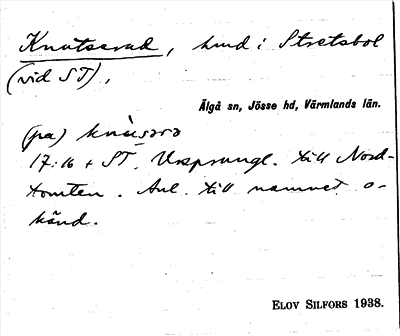 Knutserud, lund i Stretsbol
(vid ST),
Älgå sn, Jösse hd, Värmlands län.
(pa) knùsərə
17:16 + ST. Ursprungl. till Nord-
tomten. Anl. till namnet o-
känd.
ELOV SILFORS 1938.